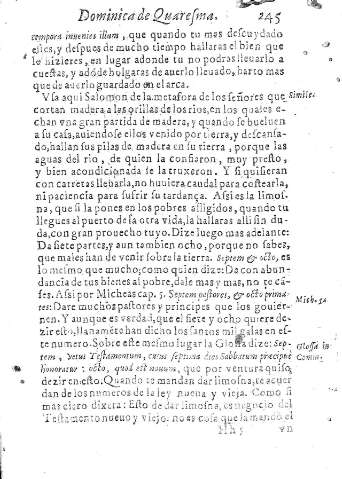 Dominica de Quaresma. 245
tempora inuenies illum, que quando tu mas descuydado
estes, y despues de mucho tiempo hallaras el bien que
le hizieres, en lugar adonde tu no podras lleuarlo a
cuestas, y adõde holgaras de auerlo lleuado, harto mas
que de auerlo guardado en el arca.
Vsa aqui Salomon de la metafora de los señores que Simile.
cortan madera a las orillas de los rios, en los quales e-
chan vna gran partida de madera, y quando se bueluen
a su casa, auiendose ellos venido por tierra, y descansa-
do, hallan sus pilas de madera en su tierra, porque las
aguas del rio, de quien la confiaron, muy presto,
y bien acondicionada se la truxeron. Y si quisieran
con carretas lleuarla, no huuiera caudal para costearla,
ni paciencia para sufrir su tardança. Assi es la limos-
na, que si la pones en los pobres afligidos, quando tu
llegues al puerto de la otra vida, la hallaras alli sin du-
da, con gran prouecho tuyo. Dize luego mas adelante:
Da siete partes, y aun tambien ocho, porque no sabes,
que males han de venir sobre la tierra. Septem & octo, es
lo mesmo que mucho; como quien dize: Da con abun-
dancia de tus bienes al pobre, dale mas y mas, no te cã-
ses. Assi por Micheas cap. 5. Septem pastores, & octo prima- Mich. 5.
tes: Dare muchos pastores y principes que los gouier-
nen. Y aunque es verdad, que el siete y ocho quiere de-
zir esto, llanamẽte han dicho los santos mil galas en es-
te numero. Sobre este mesmo lugar la Glossa dize: Sep- Glossa in
tem, vetus Testamentum, octo, quod est nouum, que por ventura quiso
dezir en esto. Quando te mandan dar limosna, te acuer
dan de los numeros de la ley nueua y vieja. Como si
mas claro dixera: Esto de dar limosna, es negocio del
Testamento nueuo y viejo. no es cosa que la mando el
Hh 5 vn